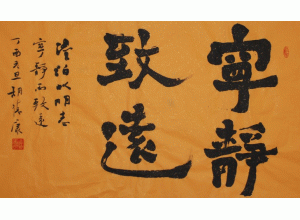 寧靜
致遠
淡泊以明志
寧靜而致遠
丁酉元旦